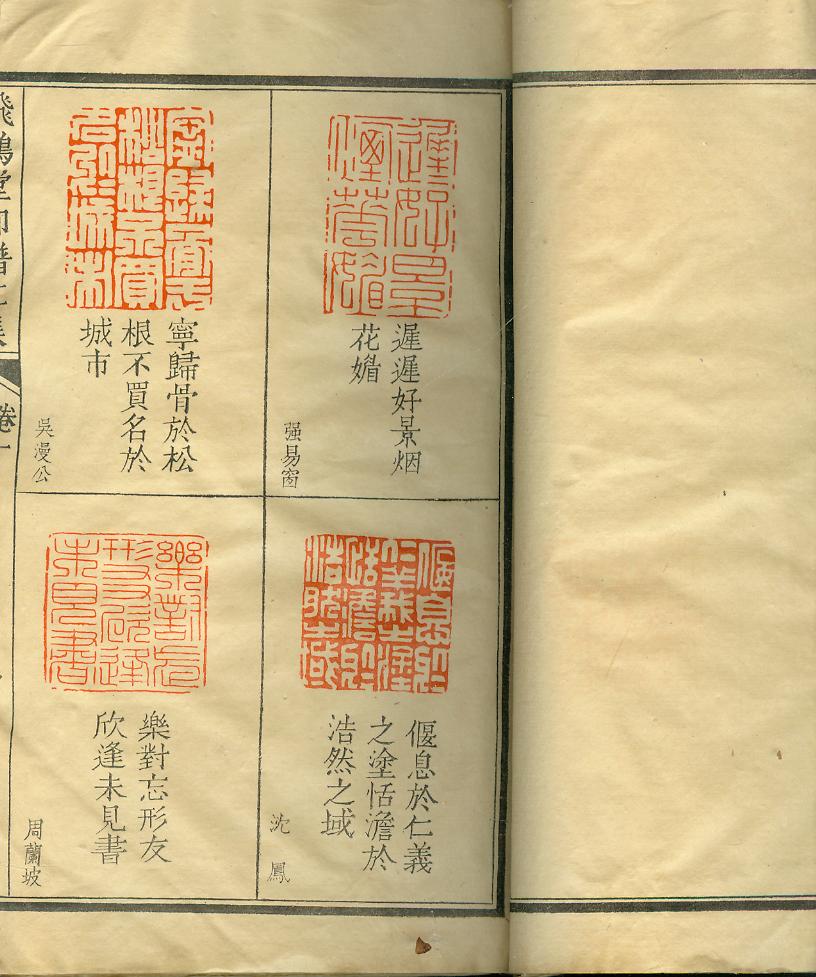 遲遲好景烟
花媚
强易窗
偃息於仁義
之塗恬澹於
浩然之域
沈鳳
寧歸骨於松
根不買名於
城市
吳漫公
樂對忘形友
欣逢未見書
周蘭坡
飛鴻堂印譜
卷一